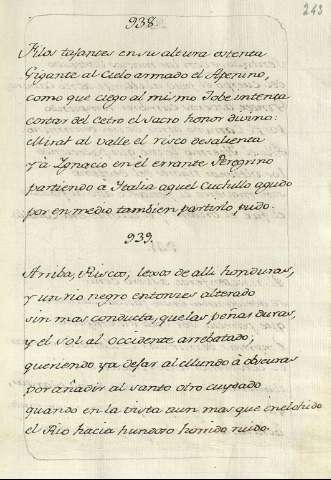 243
938.
Filos tajantes en su altura ostenta
Gigante al Cielo armado el Apenino,
como que ciego al mismo Jobe intenta
cortar del Cetro el sacro honor divino:
Mirar al valle el risco desalienta
y à Ignacio en el errante Peregrino
partiendo à Italia aquel Cuchillo agudo
por en medio tambien partirlo pudo.
939.
Arriba, Riscos, lexos de alli honduras,
y un rio negro entonces alterado
sin mas conducta, que las peñas duras,
y el sol al occidente arrebatado,
queriendo ya dejar al Mundo à obscuras
por añadir al santo otro cuydado
quando en la vista aun mas que
el Rio hacia hundoso horrido ruido.